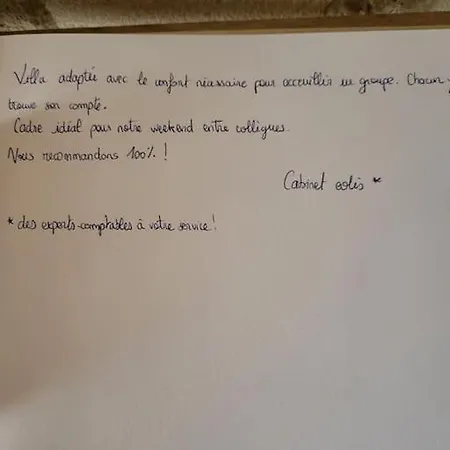 Villa adaptée avec le confort nécessaire pour accueillir un groupe. Chacun y
trouve son compte.
Cadre idéal pour notre weekend entre collègues.
Nous recommandons 100% !
Cabinet eolis *
* des experts-comptables à votre service !